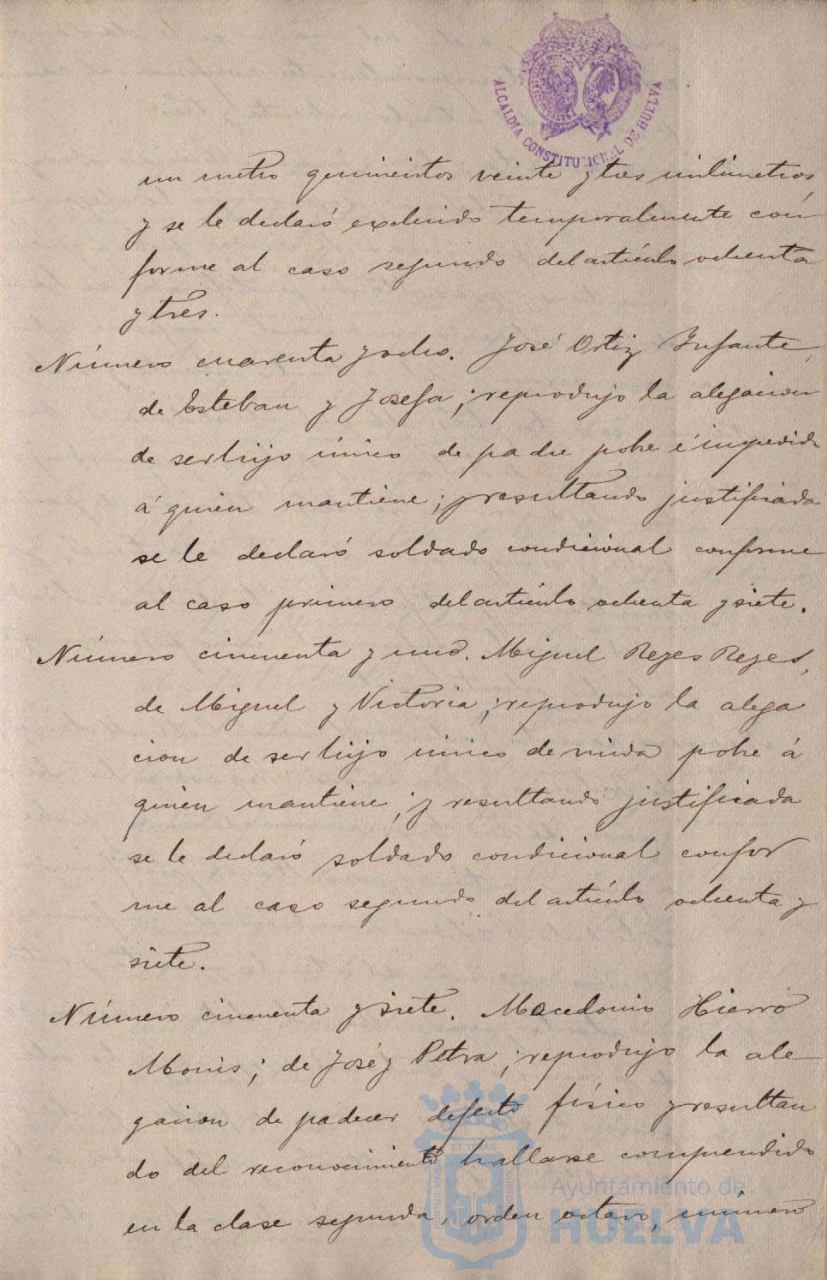 ALCALDIA CONSTITUCIONAL DE HUELVA
un metro quinientos veinte y tres milimetros,
y se le declaró excluido temporalmente con
forme al caso segundo del artículo ochenta
y tres.
Número cuarenta y ocho. José Ortiz Infante,
de Esteban y Josefa; reprodujo la alegacion
de ser hijo único de padre pobre é impedido
á quien mantiene; y resultando justificada
se le declaró soldado condicional conforme
al caso primero del artículo ochenta y siete.
Número cincuenta y uno. Miguel Reyes Reyes,
de Miguel y Victoria; reprodujo la alega
cion de ser hijo único de viuda pobre á
quien mantiene; y resultando justificada
se le declaró soldado condicional confor
me al caso segundo del artículo ochenta y
siete.
Número cincuenta y siete. Macedonio Hierro
Monis; de José y Petra; reprodujo la ale
gacion de padecer defecto físico y resultan
do del reconocimiento hallarse comprendido
en la clase segunda, orden octavo, número
Ayuntamiento de
HUELVA